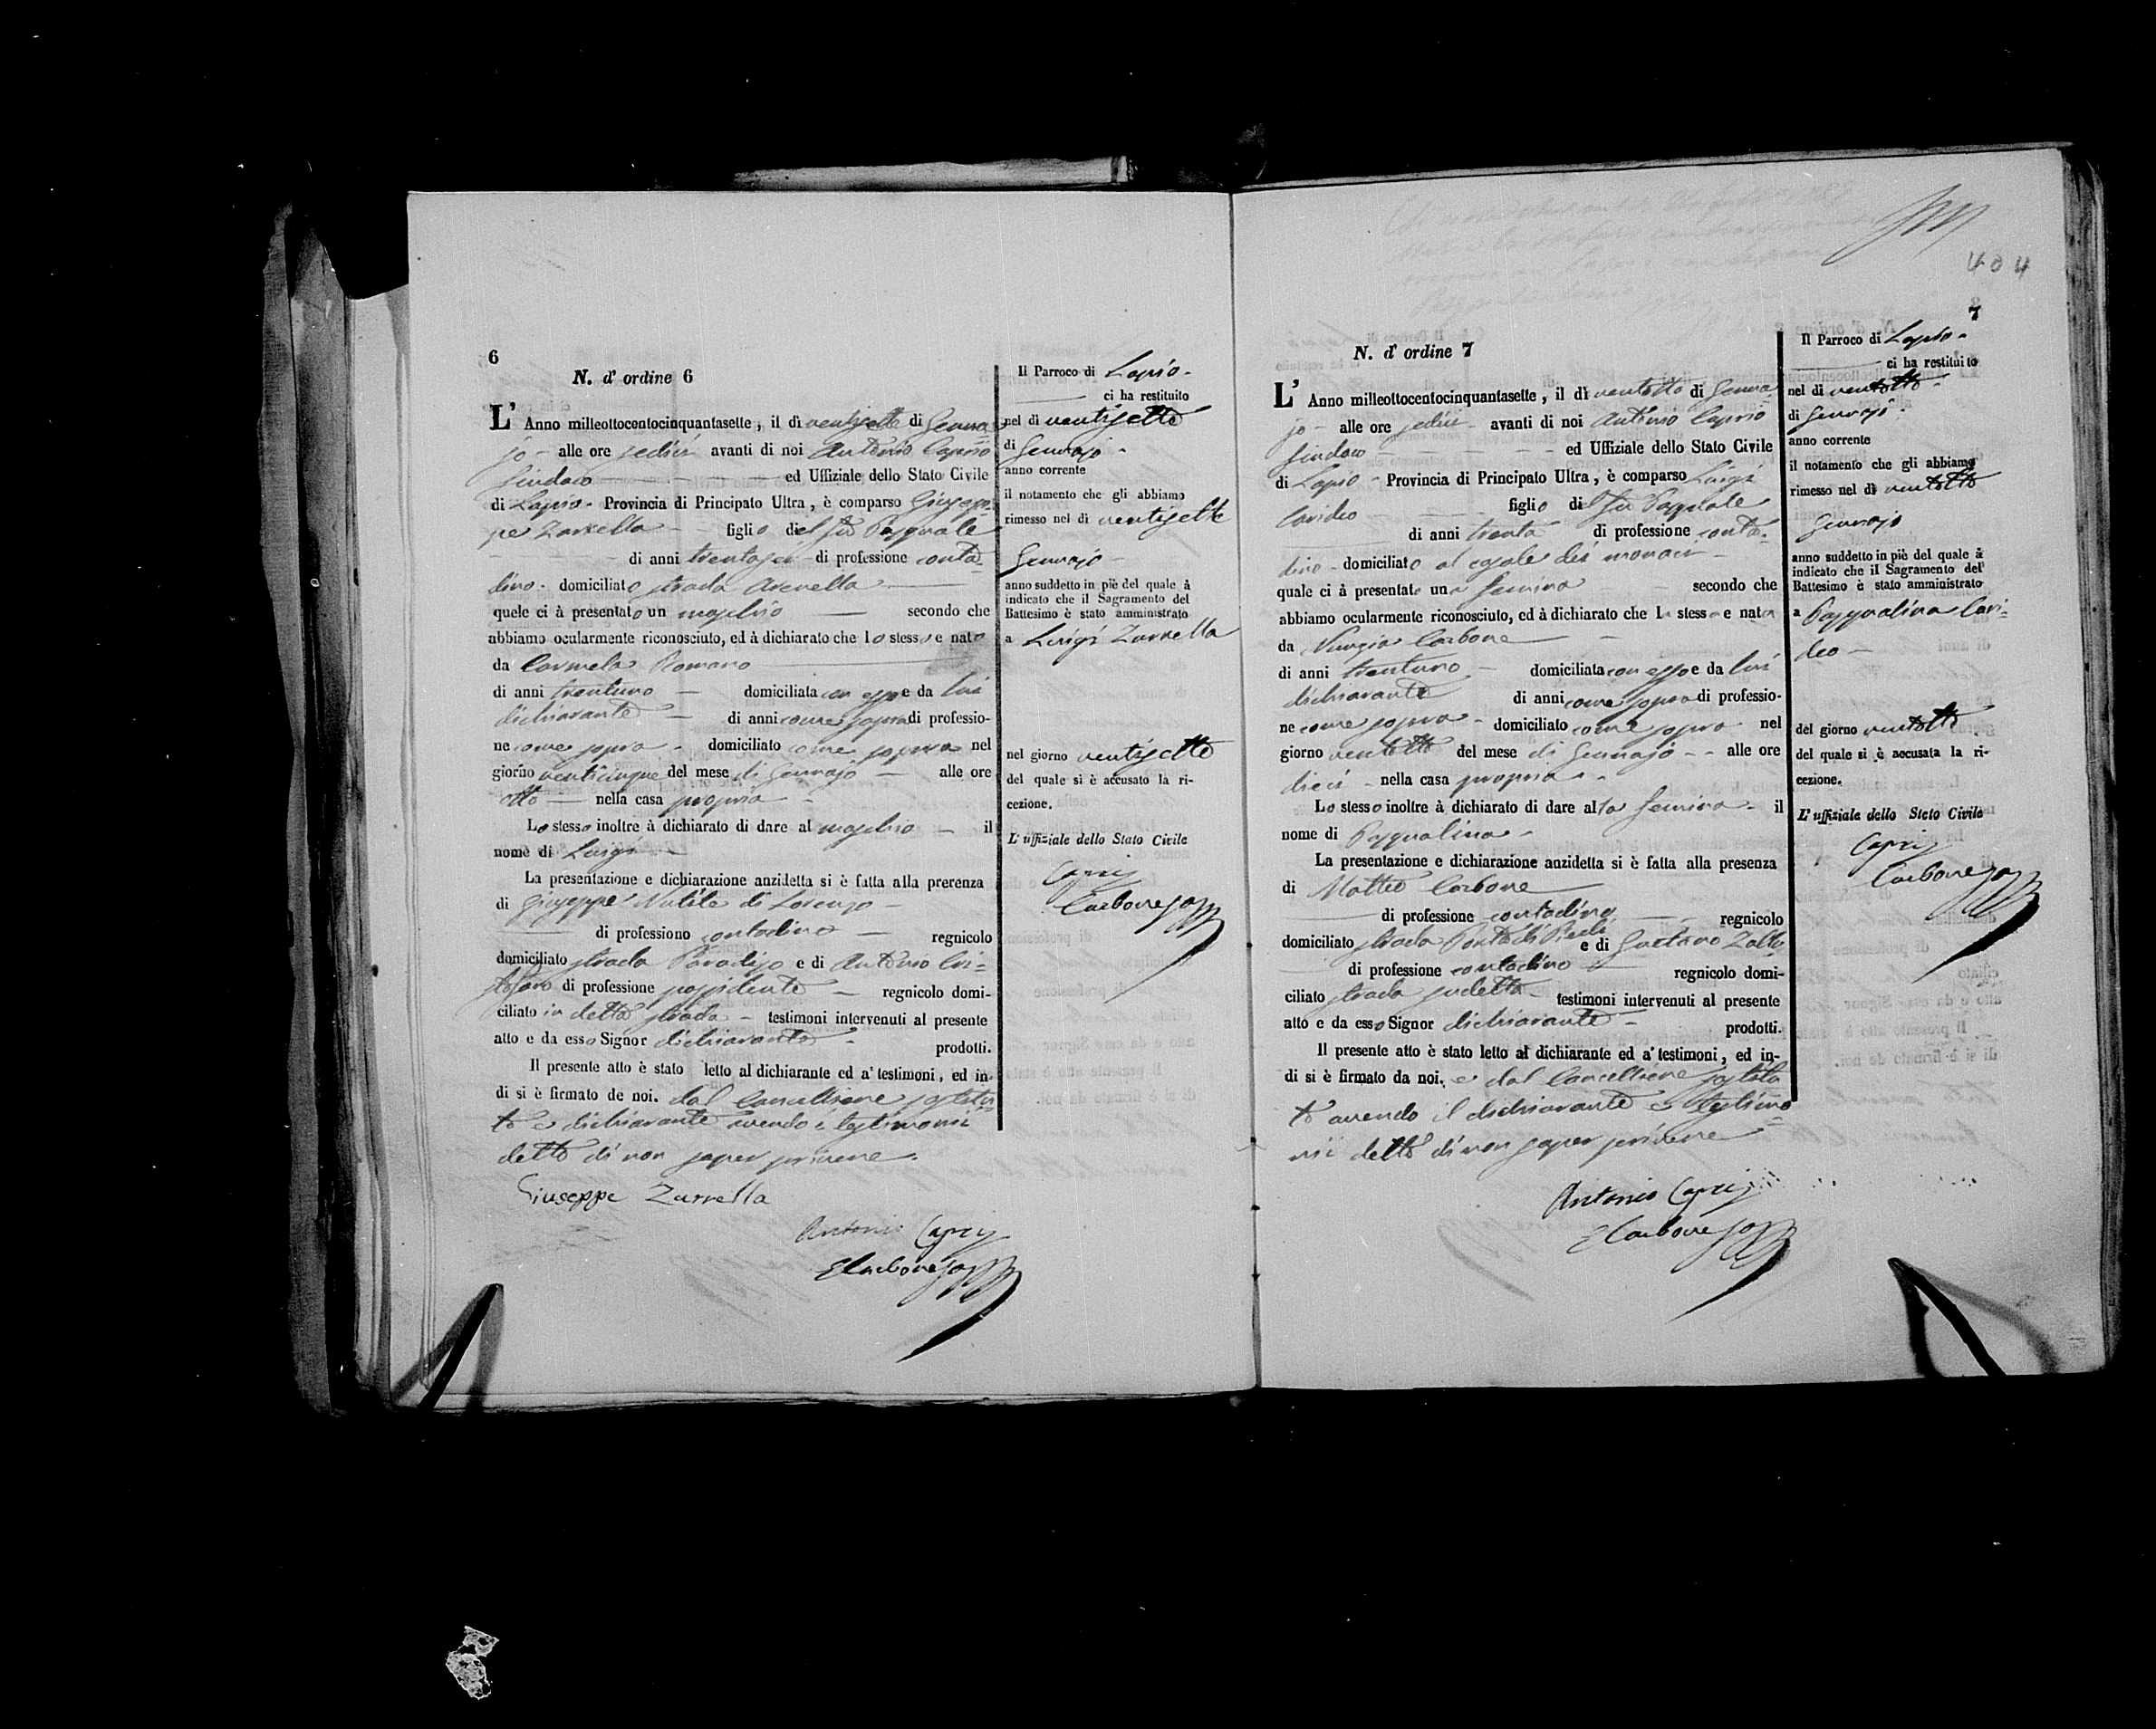 6
N. d' ordine 6
L' Anno milleottocentocinquantasette, il dì ventisette di Genna=
jo - alle ore sedici avanti di noi Antonio Caprio
Sindaco ed Uffiziale dello Stato Civile
di Lapio - Provincia di Principato Ultra, è comparso Giusep=
pe Zarrella figlio del fu Pasquale
di anni trentasei di professione conta=
dino - domiciliato strada Arenella
quele ci à presentato un maschio secondo che
abbiamo ocularmente riconosciuto, ed à dichiarato che lo stesso e nato
da Carmela Romano
di anni trentuno domiciliata con esso e da lui
dichiarante di anni come sopra di professio-
ne come sopra - domiciliato come sopra nel
giorno venticinque del mese di Gennajo alle ore
otto nella casa propria
Lo stesso inoltre à dichiarato di dare al maschio il
nome di Luigi
La presentazione e dichiarazione anzidetta si è fatta alla prerenza
di Giuseppe Nutile di Lorenzo
di professiono contadino regnicolo
domiciliato strada Paradiso e di Antonio Cri=
stofaro di professione possidente regnicolo domi-
ciliato in detta strada testimoni intervenuti al presente
atto e da esso Signor dichiarante
prodotti.
Il presente atto è stato letto al dichiarante ed a' testimoni, ed in-
di si è firmato de noi. dal Cancelliere sostitu
to e dichiarante avendo i testimonii
detto di non saper scrivere.
Giuseppe Zarrella
Antonio Caprio
E Carbone
Il Parroco di Lapio -
ci ha restituito
nel dì ventisette
di Gennajo -
anno corrente
il notamento che gli abbiamo
rimesso nel dì ventisette
Gennajo
anno suddetto in piè del quale à
indicato che il Sagramento del
Battesimo è stato amministrato
a Luigi Zarrella
nel giorno ventisette
del quale si è accusato la ri-
cezione.
L' uffiziale dello Stato Civile
Caprio
Carbone
404
7
N. d' ordine 7
L' Anno milleottocentocinquantasette, il dì ventotto di Genna=
jo - alle ore sedici - avanti di noi Antonio Caprio
Sindaco ed Uffiziale dello Stato Civile
di Lapio - Provincia di Principato Ultra, è comparso Luigi
Carideo figlio del fu Pasquale
di anni trenta di professione conta=
dino - domiciliato al casale dei monaci
quale ci à presentato una femina secondo che
abbiamo ocularmente riconosciuto, ed à dichiarato che la stessa e nata
da Nunzia Carbone
di anni trentuno domiciliata con esso e da lui
dichiarante di anni come sopra di professio-
ne come sopra - domiciliato come sopra nel
giorno ventotto del mese di Gennajo - - alle ore
dieci - nella casa propria -
Lo stesso inoltre à dichiarato di dare alla femina - il
nome di Pasqualina -
La presentazione e dichiarazione anzidetta si è fatta alla presenza
di Matteo Carbone
di professione contadino regnicolo
domiciliato strada Porta di Piedi e di Gaetano
di professione contadino regnicolo domi-
ciliato strada sudetta - testimoni intervenuti al presente
atto e da esso Signor dichiarante -
prodotti.
Il presente atto è stato letto al dichiarante ed a' testimoni, ed in-
di si è firmato da noi. e dal Cancelliere sostitu
to avendo il dichiarante e testimo=
nii detto di non saper scrivere
Antonio Caprio
E Carbone
Il Parroco di Lapio -
ci ha restituito
nel dì ventotto -
di Gennajo -
anno corrente
il notamento che gli abbiamo
rimesso nel dì ventotto
Gennajo
anno suddetto in piè del quale à
indicato che il Sagramento del
Battesimo è stato amministrato
a Pasqualina Cari=
deo -
del giorno ventotto
del quale si è accusata la ri-
cezione.
L' uffiziale dello Steto Civile
Caprio
Carbone